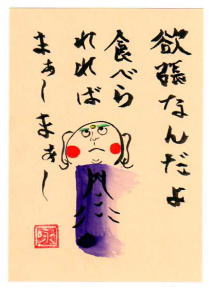 欲張なんだよ
食べら
れれば
まぁーまぁー